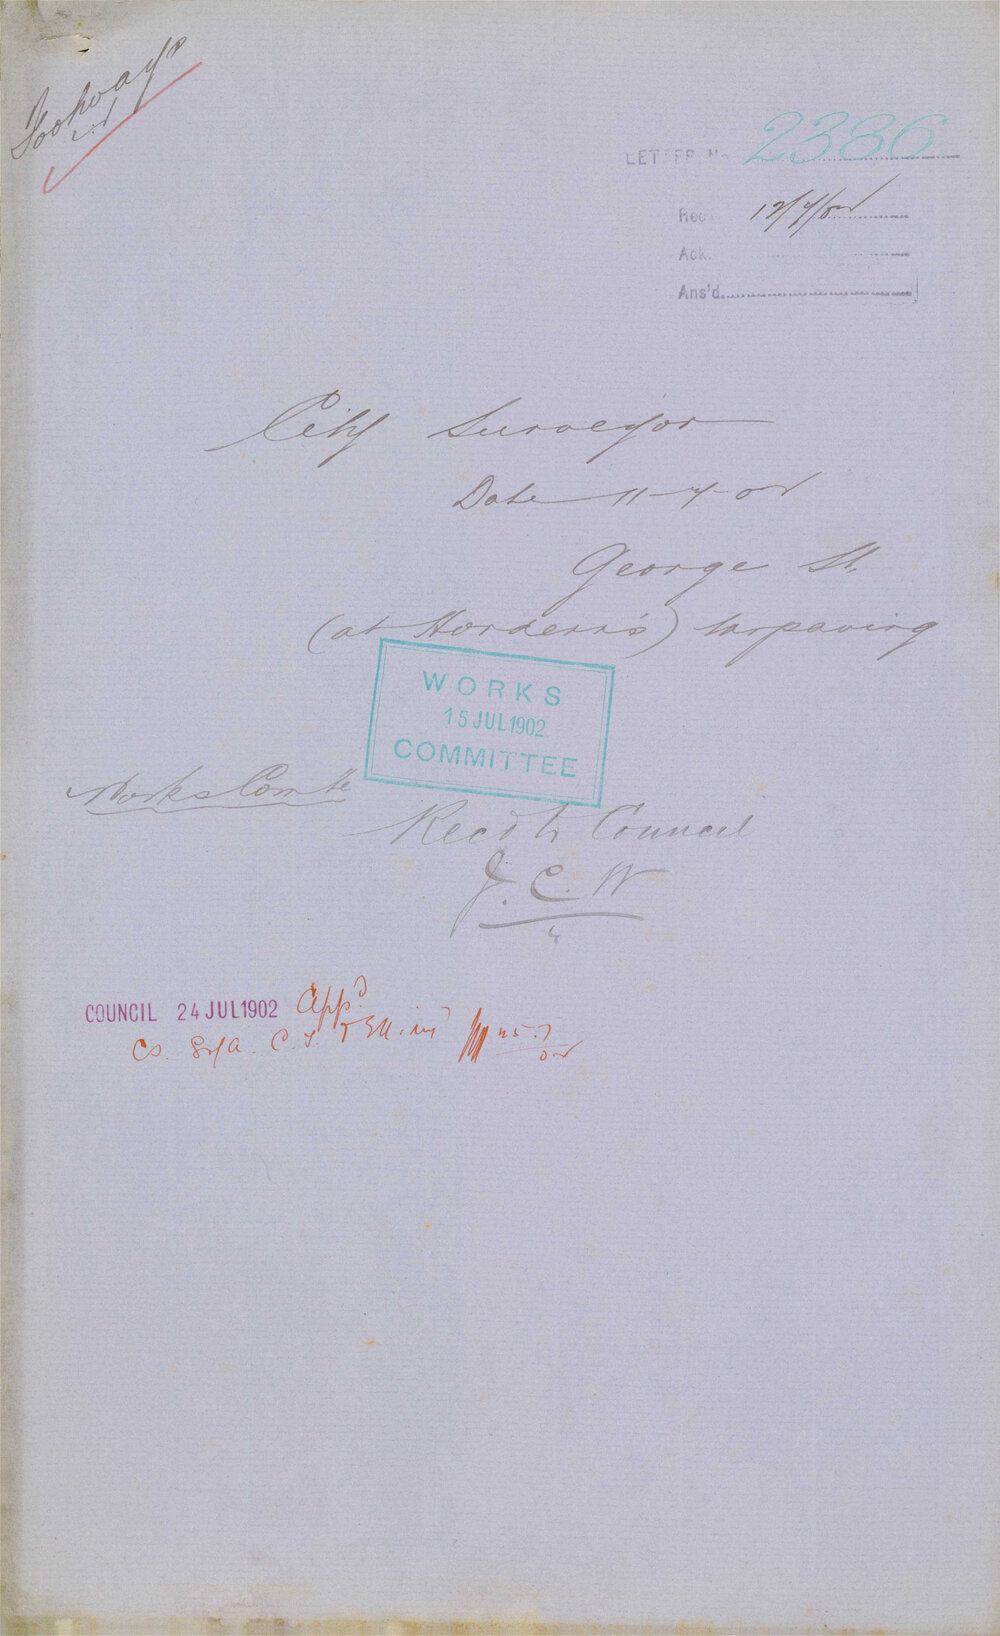 Footways
LETTER No 2386
Rec 12/7/02
Ack.
Ans'd
City Surveyor
Date 11-7-02
George St.
(at Hordern's) tarpaving
WORKS
15 JUL 1902
COMMITTEE
Works Comtte
Recd to Council
J. C. W
COUNCIL 24 JUL 1902 Appd
C.S. C.T. 25.7
02